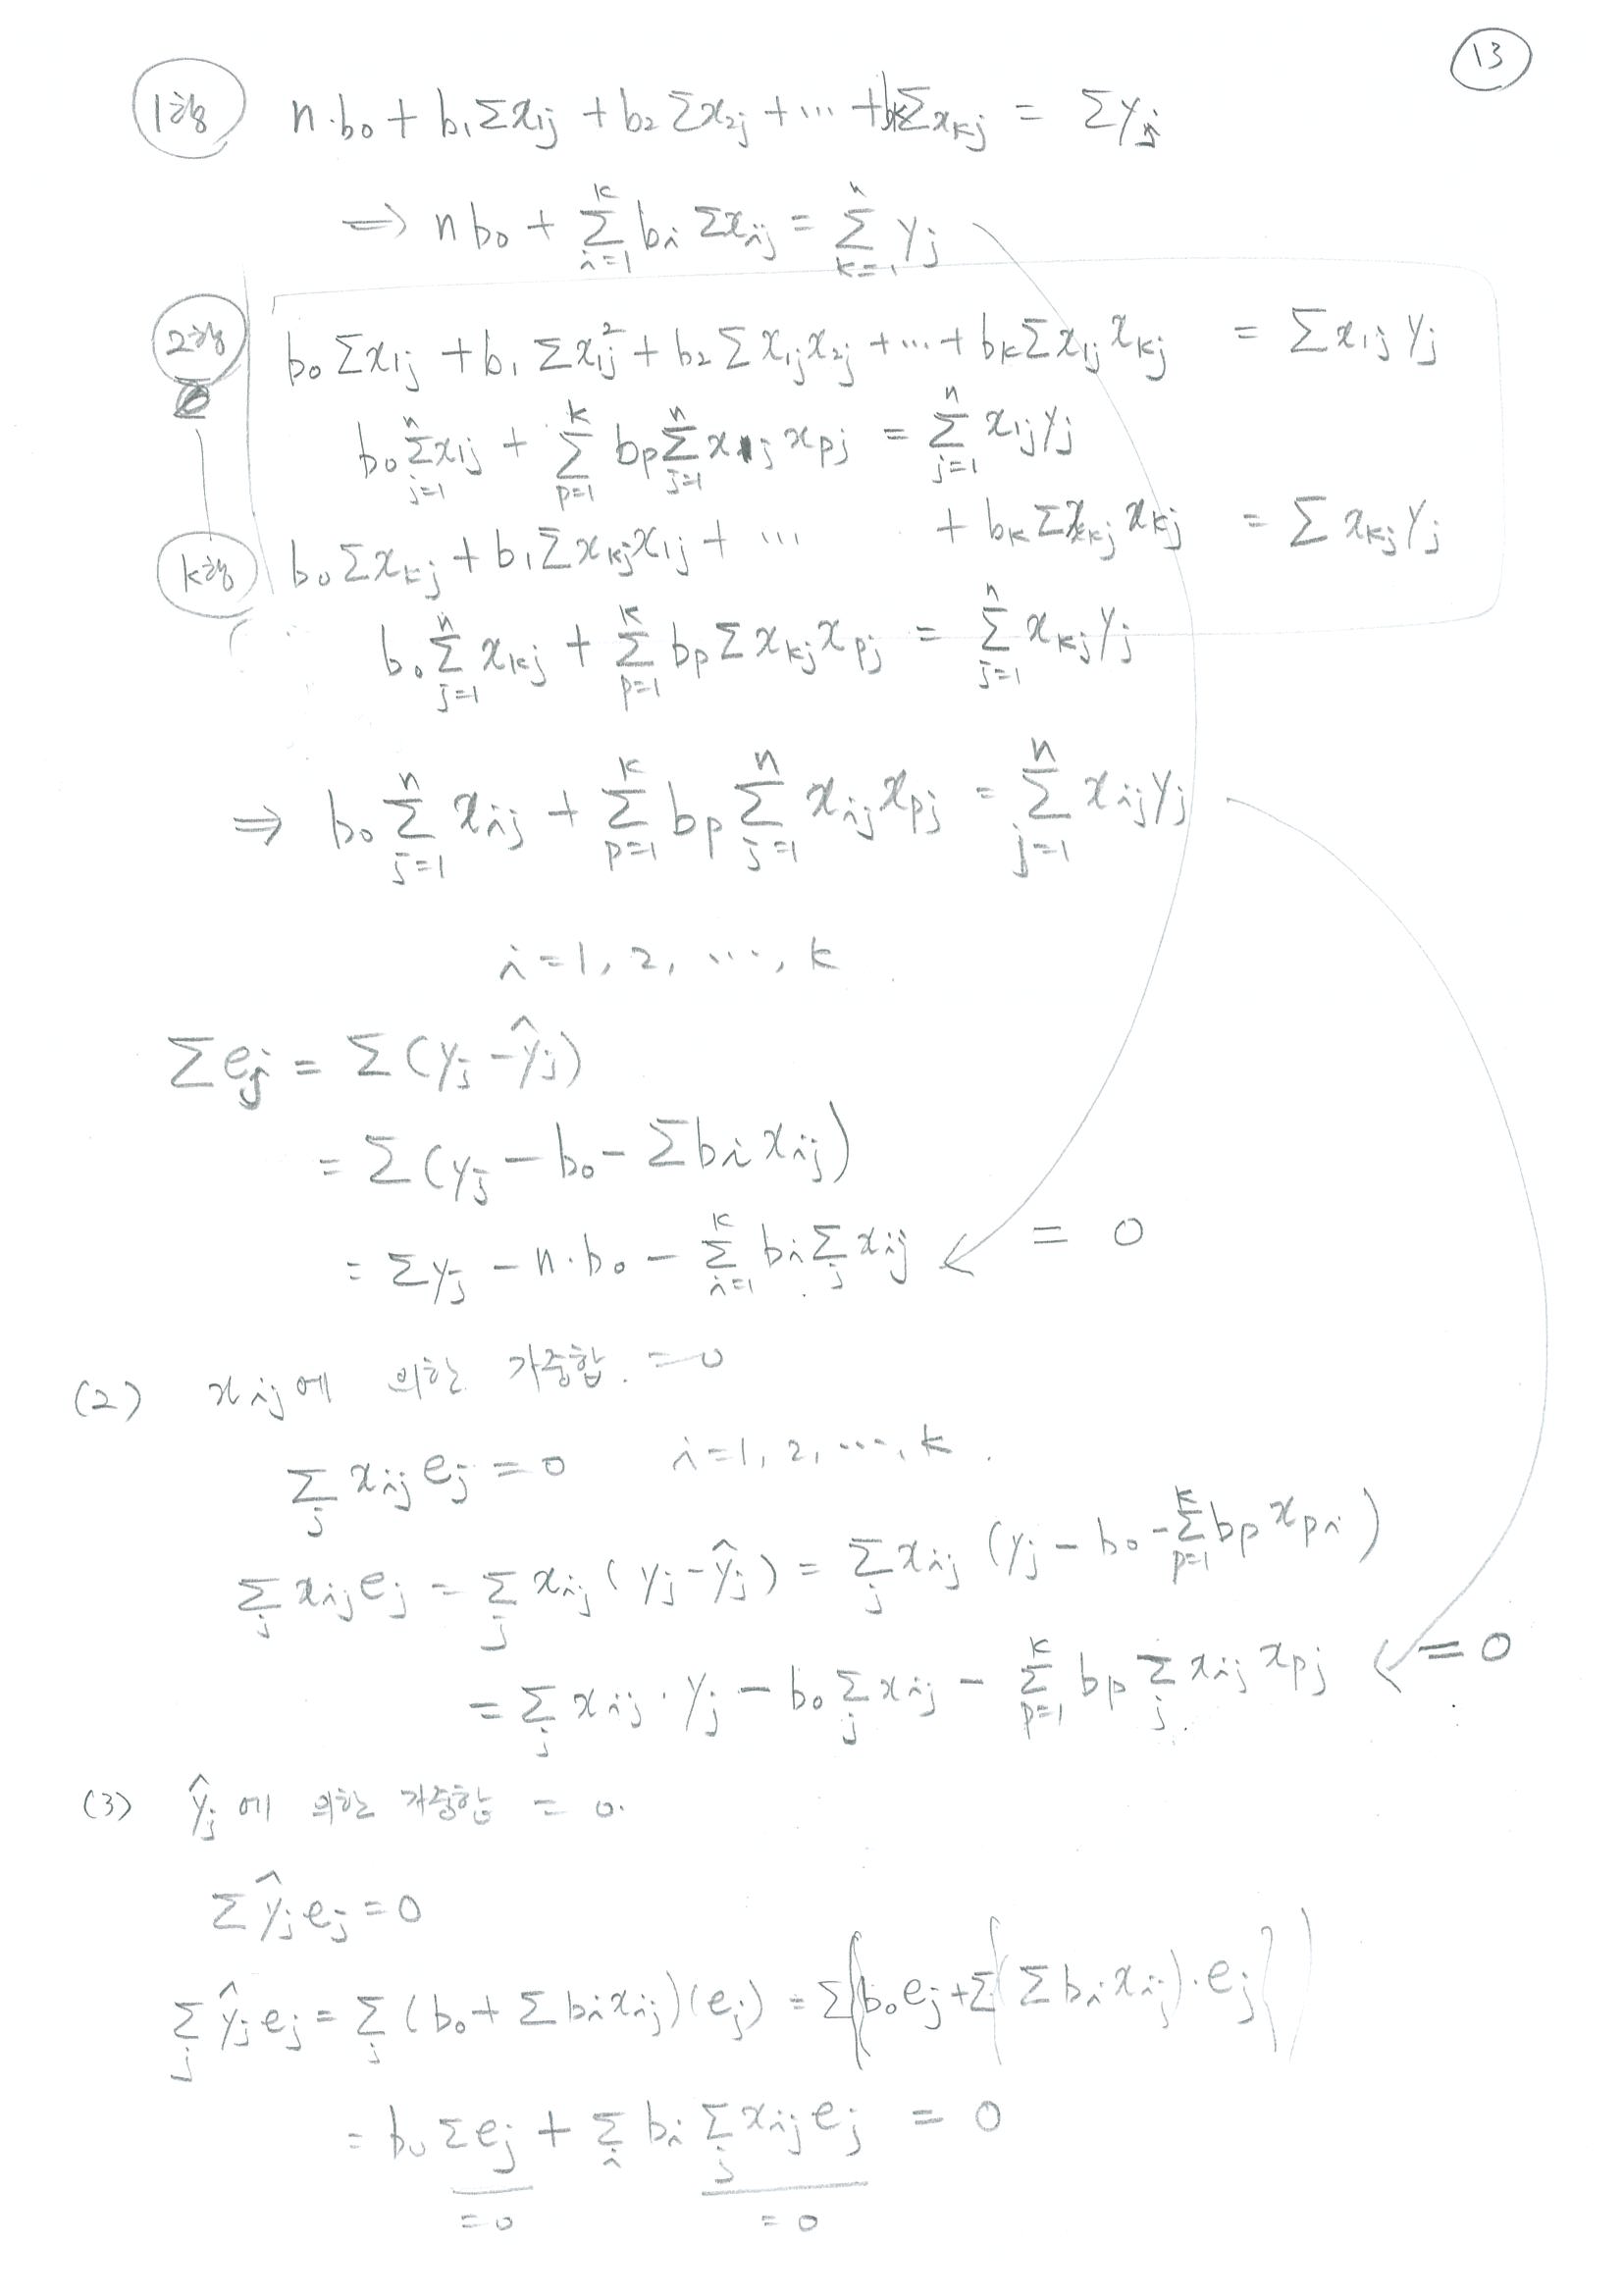 13
1행 n·b₀ + b₁Σx₁ⱼ + b₂Σx₂ⱼ + ··· + bₖΣxₖⱼ = Σyⱼ
⇒ nb₀ + Σ_{i=1}^{k} bᵢ Σxᵢⱼ = Σ_{k=1}^{n} yⱼ
2행 b₀Σx₁ⱼ + b₁Σx₁ⱼ² + b₂Σx₁ⱼx₂ⱼ + ··· + bₖΣx₁ⱼxₖⱼ = Σx₁ⱼyⱼ
b₀Σ_{j=1}^{n} x₁ⱼ + Σ_{p=1}^{k} bₚ Σ_{j=1}^{n} x₁ⱼxₚⱼ = Σ_{j=1}^{n} x₁ⱼyⱼ
k행 b₀Σxₖⱼ + b₁Σxₖⱼx₁ⱼ + ··· + bₖΣxₖⱼxₖⱼ = Σxₖⱼyⱼ
b₀Σ_{j=1}^{n} xₖⱼ + Σ_{p=1}^{k} bₚΣxₖⱼxₚⱼ = Σ_{j=1}^{n} xₖⱼyⱼ
⇒ b₀Σ_{j=1}^{n} xᵢⱼ + Σ_{p=1}^{k} bₚ Σ_{j=1}^{n} xᵢⱼxₚⱼ = Σ_{j=1}^{n} xᵢⱼyⱼ
i=1, 2, ···, k
Σeⱼ = Σ(yⱼ-ŷⱼ)
= Σ(yⱼ - b₀ - Σbᵢxᵢⱼ)
= Σyⱼ - n·b₀ - Σ_{i=1}^{k} bᵢ Σ_{j} xᵢⱼ = 0
(2) xᵢⱼ에 의한 가중합. = 0
Σ_{j} xᵢⱼeⱼ = 0 i=1, 2, ···, k.
Σ_{j} xᵢⱼeⱼ = Σ_{j} xᵢⱼ(yⱼ-ŷⱼ) = Σ_{j} xᵢⱼ(yⱼ - b₀ - Σ_{p=1}^{k} bₚxₚᵢ)
= Σ_{j} xᵢⱼ·yⱼ - b₀Σ_{j} xᵢⱼ - Σ_{p=1}^{k} bₚ Σ_{j} xᵢⱼxₚⱼ = 0
(3) ŷⱼ에 의한 가중합 = 0.
Σŷⱼeⱼ = 0
Σ_{j} ŷⱼeⱼ = Σ_{j} (b₀ + Σbᵢxᵢⱼ)(eⱼ) = Σ{b₀eⱼ + Σ{(Σbᵢxᵢⱼ)·eⱼ}}
= b₀Σeⱼ + Σ_{i} bᵢ Σ_{j} xᵢⱼeⱼ = 0
=0 =0